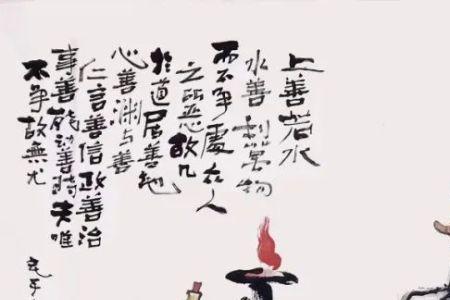 上善若水
水善利萬物
而不争處在人
之所恶故几
於道居善地
心善渊与善
仁言善信政善治
事善能动善時夫唯
不争故無尤